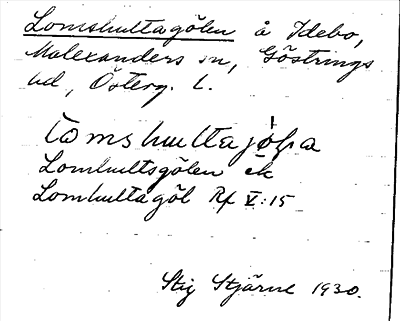 Lomshultagölen å Idebo,
Malexanders sn, Göstrings
hd, Österg. l.
lomshultajöḷa
Lomhultsgölen ek
Lomhultagöl Rf V:15
Stig Stjärne 1930.